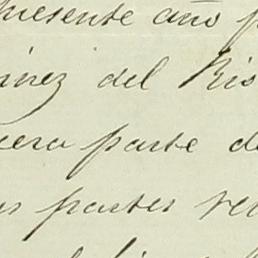 presente año p
inez del Rio
cera parte de
as partes re